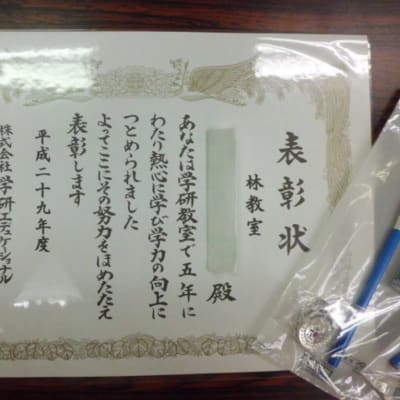 表彰状
林教室
殿
あなたは学研教室で五年に
わたり熱心に学び学力の向上に
つとめられました
よってここにその努力をほめたたえ
表彰します
平成二十九年度
株式会社学研エデュケーショナル